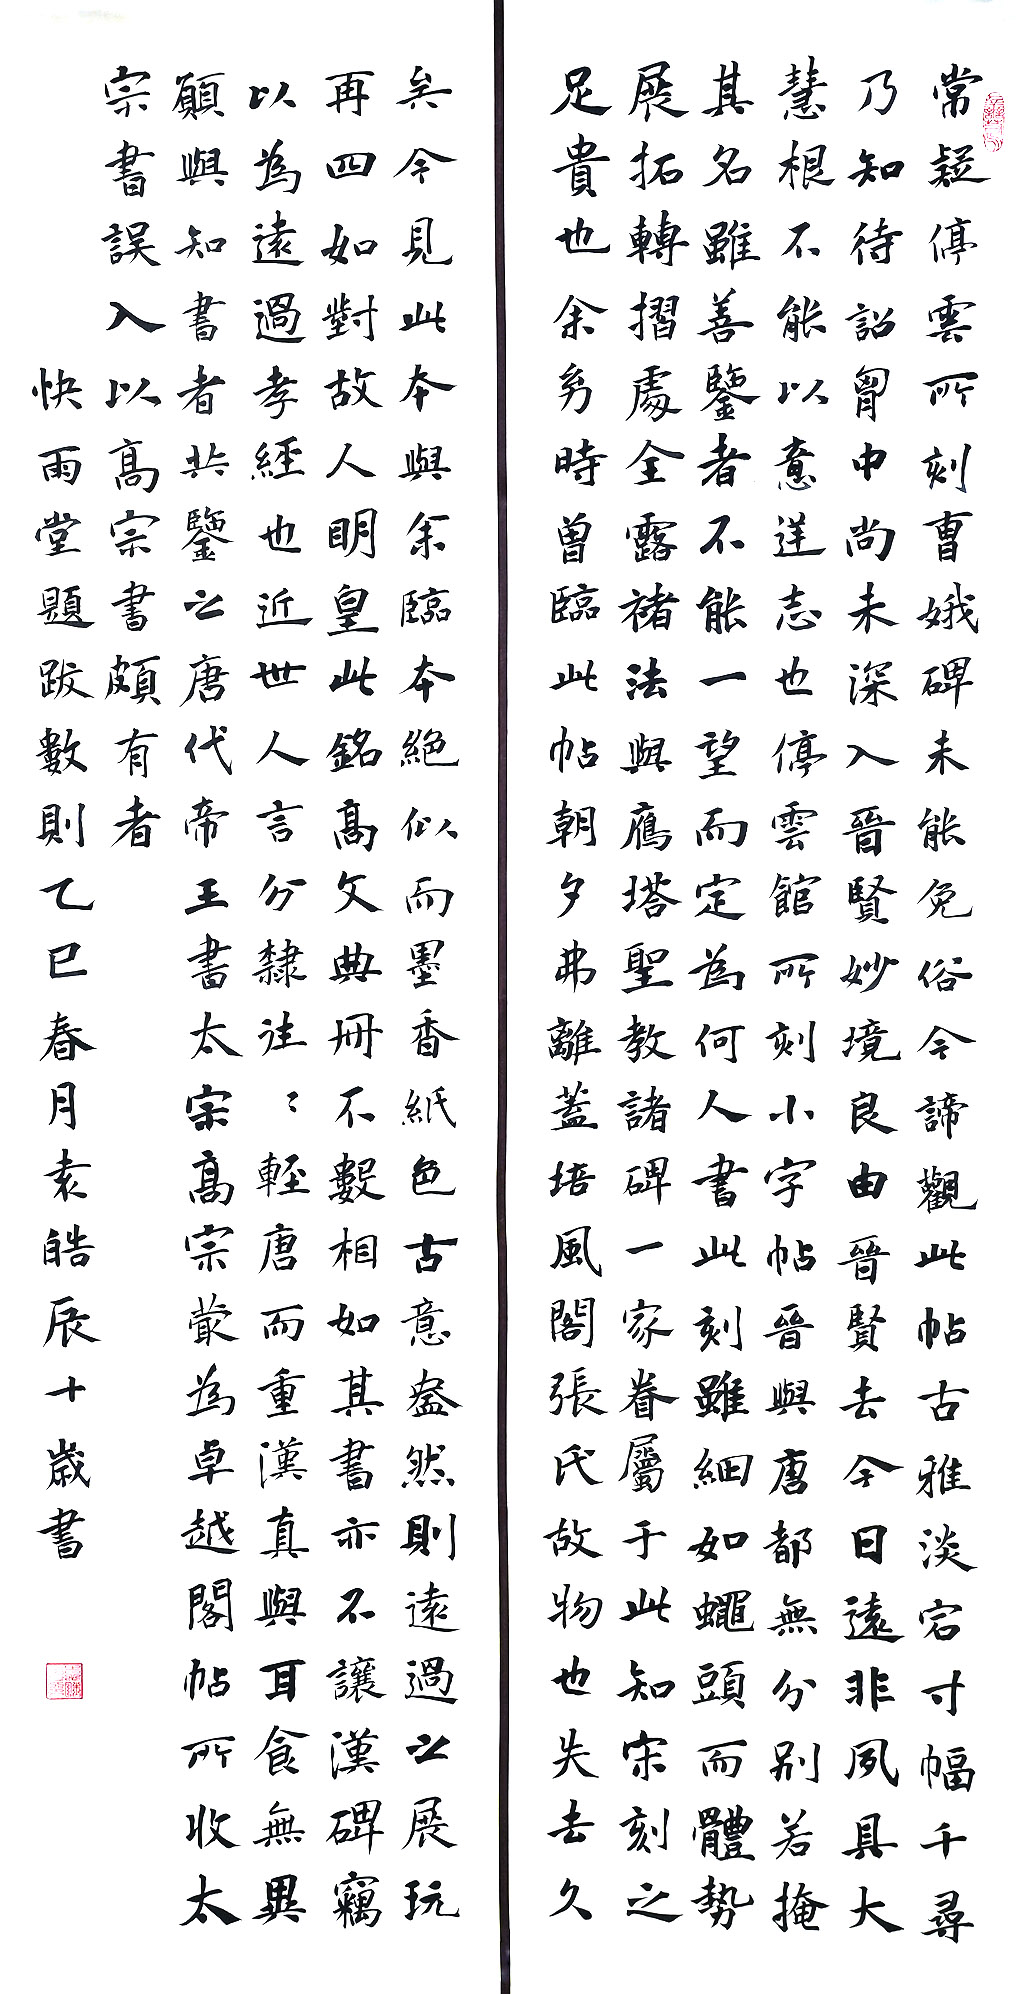 常疑停雲所刻曹娥碑未能免俗今諦觀此帖古雅淡宕寸幅千尋
乃知待詔胷中尚未深入晉賢妙境良由晉賢去今日遠非夙具大
慧根不能以意逆志也停雲館所刻小字帖晉與唐都無分别若掩
其名雖善鑒者不能一望而定為何人書此刻雖細如蠅頭而體勢
展拓轉摺處全露褚法與鴈塔聖教諸碑一家眷屬于此知宋刻之
足貴也余㓜時曾臨此帖朝夕弗離蓋培風閣張氏故物也失去久
矣今見此本與余臨本絕似而墨香紙色古意盎然則遠過之展玩
再四如對故人明皇此銘高文典冊不數相如其書亦不讓漢碑竊
以為遠過孝經也近世人言分隸往〻輕唐而重漢真與耳食無異
願與知書者共鑒之唐代帝王書太宗高宗最為卓越閣帖所收太
宗書誤入以高宗書頗有者
快雨堂題跋數則乙巳春月袁皓辰十歲書